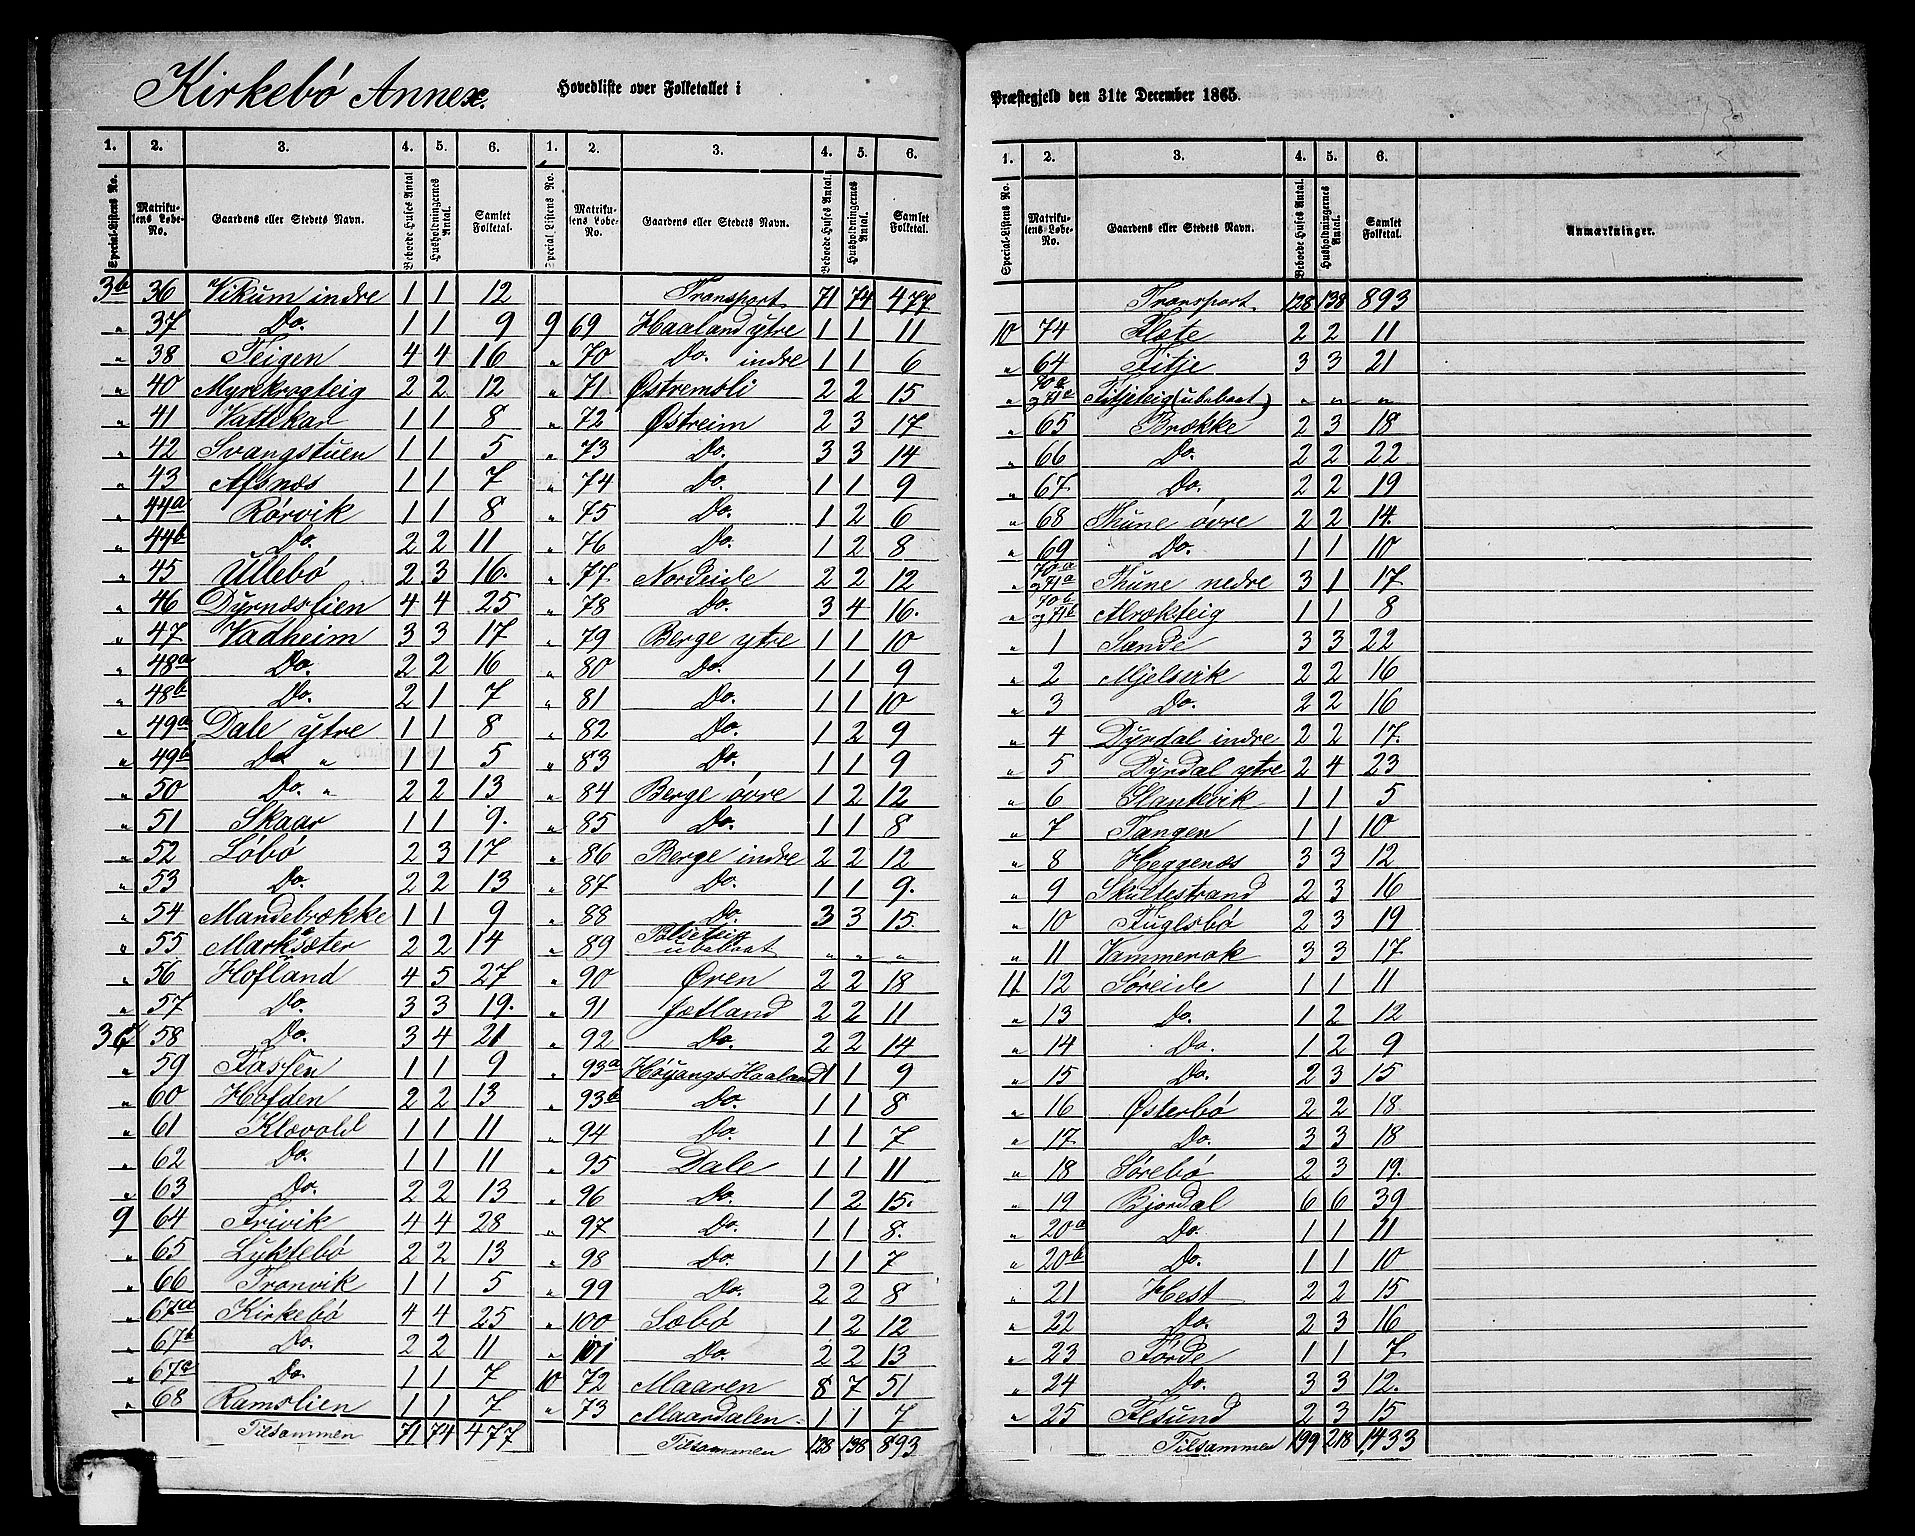 Kirkebö Annex. Hovedliste over Folketallet i
1. 2. 3. 4. 5. 6.
Special-Listens No. Matrikulens Løbe-No. Gaardens eller Stedets Navn. Beboede Huses Antal Husholdningernes Antal. Samlet Folketal.
3b 36 Vikum indre 1 1 12
" 37 Do. 1 1 9
" 38 Teigen 4 4 16
" 40 Myrekrogteig 2 2 12
" 41 Vattekar 1 1 8
" 42 Svangstuen 1 1 5
" 43 Afsnæs 1 1 7
" 44a Rörvik 1 1 8
" 44b Do. 2 2 11
" 45 Ullebö 2 3 16.
" 46 Dyrnæslien 4 4 25
" 47 Vadheim 3 3 17
" 48a Do. 2 2 16
" 48b Do. 2 1 7
" 49a Dale ytre 1 1 8
" 49b Do " 1 1 5
" 50 Do. " 2 2 13
" 51 Skaar 1 1 9.
" 52 Löbö 2 3 17
" 53 Do. 2 2 13
" 54 Mandebrække 1 1 9
" 55 Marksæter 2 2 14
" 56 Hofland 4 5 27
" 57 Do. 3 3 19.
3c 58 Do. 3 4 21
" 59 Tassen 1 1 9
" 60 Holden 2 2 13
" 61 Klævold 1 1 11
" 62 Do. 1 1 11
" 63 Do. 2 2 13
9 64 Trivik 4 4 28
" 65 Lyktebö 2 2 13
" 66 Tronvik 1 1 5
" 67a Kirkebö 4 4 25
" 67b Do. 2 2 11
" 67c Do. 1 1 7
" 68 Ramslien 1 1 7
Tilsammen 71 74 477
1. 2. 3. 4. 5. 6.
Special Listens No. Matrikulens Løbe-No. Gaardens eller Stedets Navn. Beboede Huses Antal. Husholdningernes Antal. Samlet Folketal.
Transport 71 74 477
9 69 Haaland ytre 1 1 11
" 70 Do. indre 1 1 6
" 71 Østremsli 2 2 15
" 72 Østreim 2 3 17
" 73 Do. 3 3 14
" 74 Do. 1 1 9
" 75 Do. 1 2 6
" 76 Do. 1 2 8
" 77 Nordeide 2 2 12
" 78 Do. 3 4 16.
" 79 Berge ytre 1 1 10
" 80 Do. 1 1 9
" 81 Do. 1 1 10
" 82 Do. 1 2 9
" 83 Do. 1 1 9
" 84 Berge övre 1 2 12
" 85 Do. 1 1 8
" 86 Berge indre 2 2 12
" 87 Do. 1 1 9.
" 88 Do. 3 3 15.
" 89 ubeboet " " "
" 90 Øren 2 2 18
" 91 Jetland 2 2 11
" 92 Do. 2 2 14
" 93a Höyangs-Haaland 1 1 9
" 93b Do. 1 1 8
" 94 Do. 1 1 7
" 95 Dale 1 1 11
" 96 Do. 1 2 15.
" 97 Do. 1 1 8.
" 98 Do. 1 1 7
" 99 Do. 2 2 8
" 100 Sæbö 1 2 12
" 101 Do. 2 2 13
10 72 Maaren 8 7 51
" 73 Maardalen 1 1 7
Tilsammen 128 138 893
Præstegjeld den 31te December 1865.
1. 2. 3. 4. 5. 6.
Special-Listens No. Matrikulens Løbe-No. Gaardens eller Stedets Navn. Beboede Huses Antal. Husholdningernes Antal. Samlet Folketal. Anmærkninger.
Transport 128 138 893
10 74 Flete 2 2 11
" 64 Fitje 3 3 21
" 70a og 71a Fitjeteig (ubeboet) " " "
" 65 Brække 2 3 18
" 66 Do. 2 2 22
" 67 Do. 2 2 19
" 68 Thune övre 2 2 14.
" 69 Do. 1 1 10
" 70a og 71a Thune nedre 3 1 17
" 70b og 71b Alrækteig 1 1 8
" 1 Sande 3 3 22
" 2 Mjelsvik 2 2 16
" 3 Do. 2 2 16
" 4 Dyrdal indre 2 2 17.
" 5 Dyrdal ytre 2 4 23
" 6 Slantevik 1 1 5
" 7 Tangen 1 1 10
" 8 Heggenæs 3 3 12
" 9 Skultestrand 2 3 16
" 10 Fuglsbö 2 3 19
" 11 Vammerak 3 3 17
11 12 Söreide 1 1 11
" 13 Do. 1 2 12
" 14 Do. 1 2 9
" 15 Do. 2 3 15
" 16 Østerbö 2 2 18
" 17 Do. 3 3 18
" 18 Sörebö 2 3 19.
" 19 Bjordal 6 6 39
" 20a Do. 1 1 11
" 20b Do. 1 1 10
" 21 Hest 2 2 15
" 22 Do. 2 3 16
" 23 Förde 1 1 7
" 24 Do. 3 3 12.
" 25 Flesund 2 3 15
Tilsammen 199 218 1433